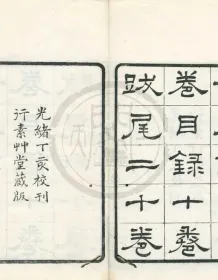 卷目録十卷
跋尾二十卷
光緒丁亥校刊
行素艸堂藏版